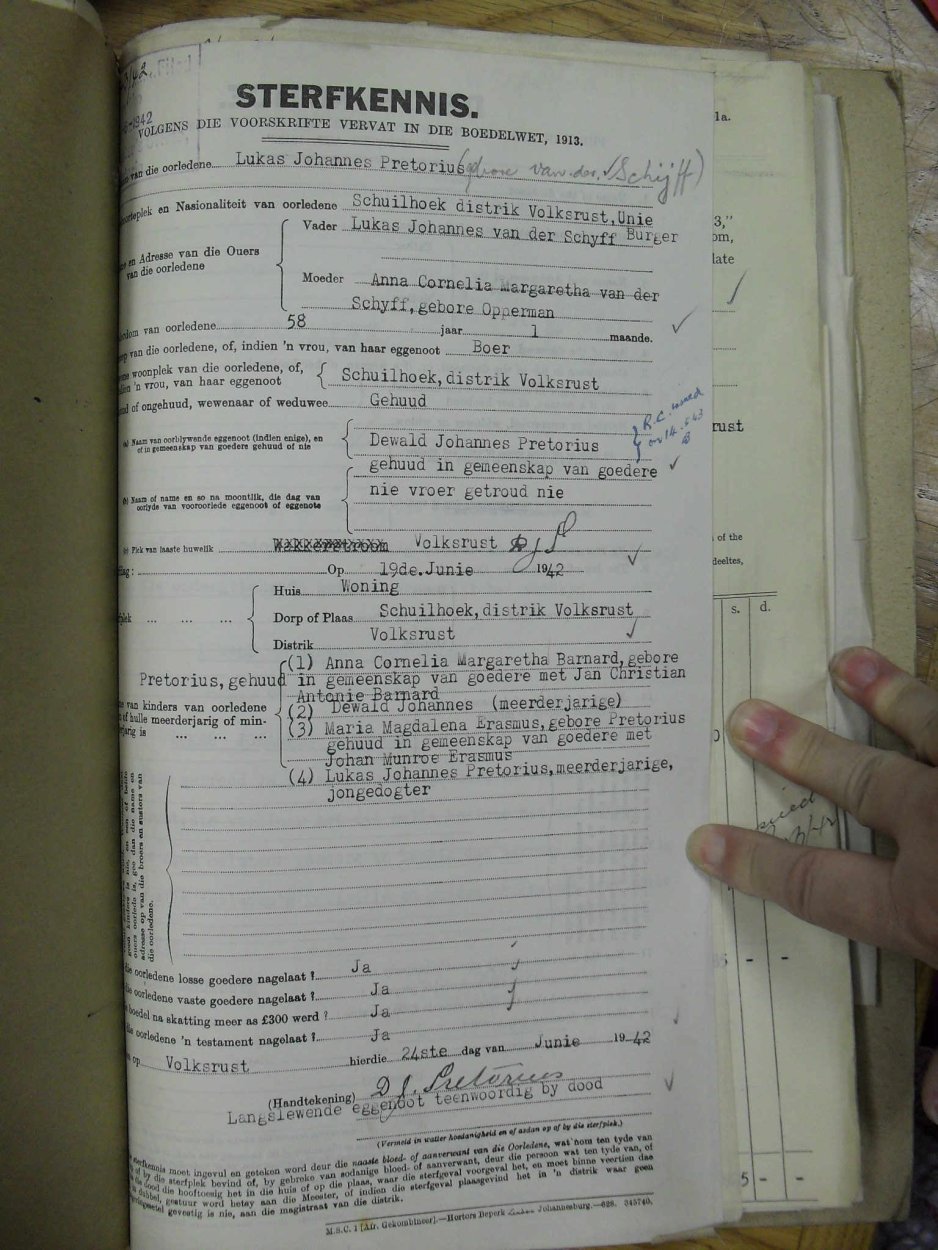 1942
STERFKENNIS.
VOLGENS DIE VOORSKRIFTE VERVAT IN DIE BOEDELWET, 1913.
van die oorledene Lukas Johannes Pretorius (gebore van der Schijff)
en Nasionaliteit van oorledene Schuilhoek distrik Volksrust, Unie
Vader Lukas Johannes van der Schyff Burger
en Adresse van die Ouers
van die oorledene
Moeder Anna Cornelia Margaretha van der
Schyff, gebore Opperman
van oorledene 58 jaar 1 maande.
van die oorledene, of, indien 'n vrou, van haar eggenoot Boer
woonplek van die oorledene, of,
'n vrou, van haar eggenoot Schuilhoek, distrik Volksrust
of ongehuud, wewenaar of weduwee Gehuud
(a) Naam van oorblywende eggenoot (indien enige), en
of in gemeenskap van goedere gehuud of nie
Dewald Johannes Pretorius
R.C. issued
on 14.6.43
gehuud in gemeenskap van goedere
(b) Naam of name en so na moontlik, die dag van
oorlyde van vooroorlede eggenoot of eggenote
nie vroer getroud nie
Plek van laaste huwelik Wakkerstroom Volksrust
Op 19de. Junie 1942
Huis Woning
Dorp of Plaas Schuilhoek, distrik Volksrust
Distrik Volksrust
(1) Anna Cornelia Margaretha Barnard, gebore
Pretorius, gehuud in gemeenskap van goedere met Jan Christian
Antonie Barnard
van kinders van oorledene
of hulle meerderjarig of min-
derjarig is
(2) Dewald Johannes (meerderjarige)
(3) Maria Magdalena Erasmus, gebore Pretorius
gehuud in gemeenskap van goedere met
Johan Munroe Erasmus
(4) Lukas Johannes Pretorius, meerderjarige,
jongedogter
adresse op van die broers en susters van
die oorledene.
die oorledene losse goedere nagelaat? Ja
die oorledene vaste goedere nagelaat? Ja
boedel na skatting meer as £300 werd? Ja
die oorledene 'n testament nagelaat? Ja
op Volksrust hierdie 24ste dag van Junie 1942
(Handtekening) D J. Pretorius
Langslewende eggenoot teenwoordig by dood
(Vermeld in watter hoedanigheid en of asdan op of by die sterfplek.)
sterfkennis moet ingevul en geteken word deur die naaste bloed- of aanverwant van die Oorledene, wat ten tyde van
of by die sterfplek bevind of, by gebreke van sodanige bloed- of aanverwant, deur die persoon wat ten tyde van, of
die dood die hooftoesig het in die huis of op die plaas, waar die sterfgeval voorgeval het, en moet binne veertien dae
gestuur word aan die Meester, of indien die sterfgeval plaasgevind het in 'n distrik waar geen
gevestig is nie, aan die magistraat van die distrik.
M.S.C. 1 [Afr. Gekombineer].—Hortors Beperk Johannesburg.—628. 345740.
1a.
3,"
om,
late
rust
of the
deeltes,
s. d.
5 - -
5 - -